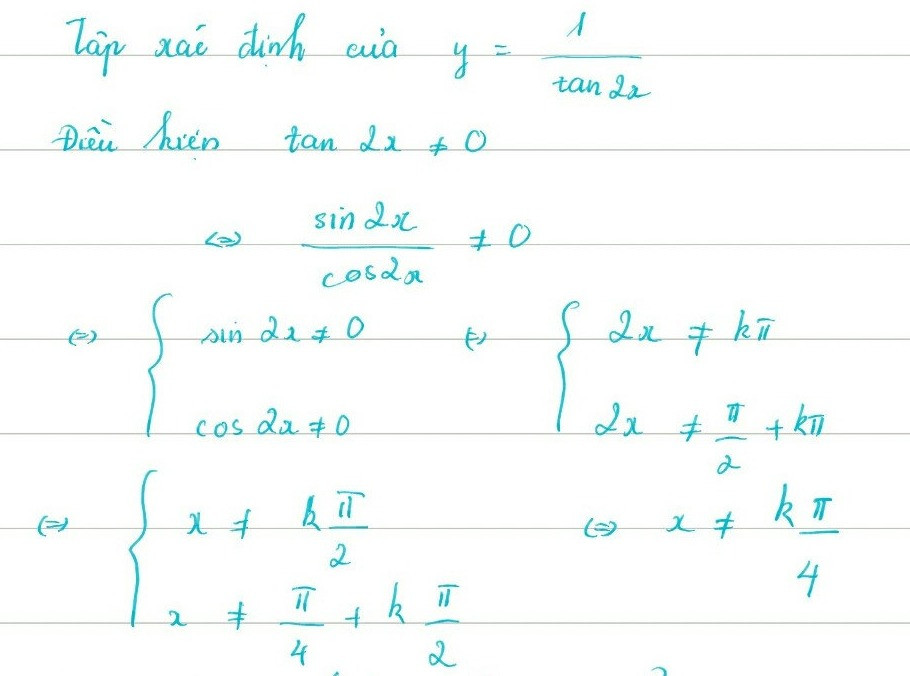 Tập xác định của y = 1/tan 2x
Điều kiện tan 2x ≠ 0
⇔ sin 2x/cos 2x ≠ 0
⇔ { sin 2x ≠ 0 ⇔ { 2x ≠ kπ
cos 2x ≠ 0 2x ≠ π/2 + kπ
⇔ { x ≠ k π/2 ⇔ x ≠ k π/4
x ≠ π/4 + k π/2